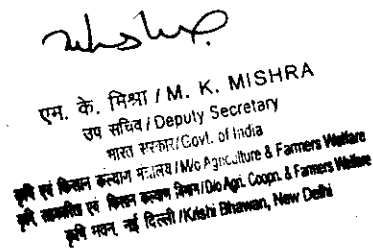 एम. के. मिश्रा / M. K. MISHRA
उप सचिव / Deputy Secretary
भारत सरकार/Govt. of India
कृषि एवं किसान कल्याण मंत्रालय / M/o Agriculture & Farmers Welfare
कृषि, सहकारिता एवं किसान कल्याण विभाग/D/o Agri. Coopn. & Farmers Welfare
कृषि भवन, नई दिल्ली /Krishi Bhawan, New Delhi